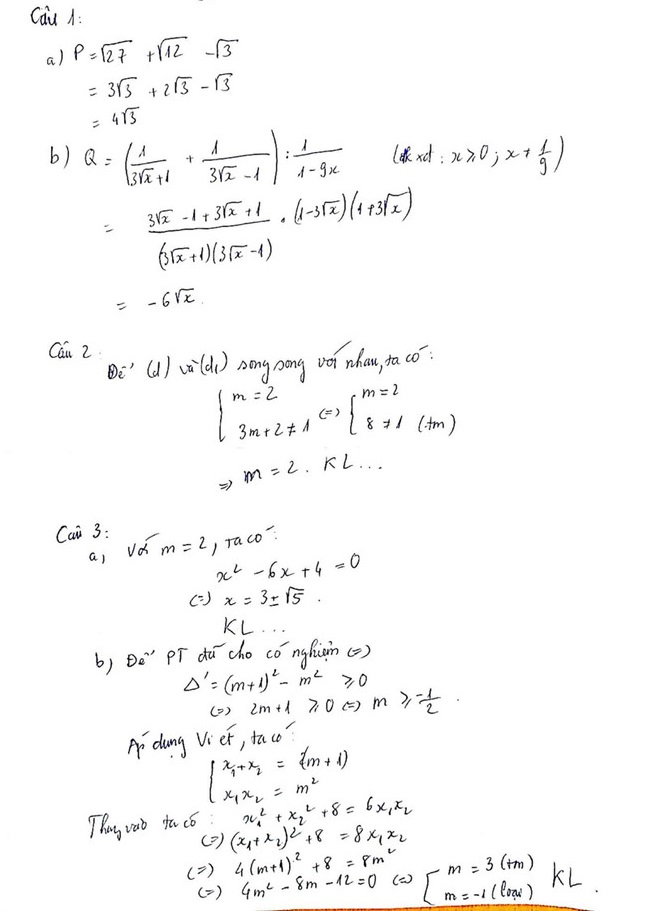 Câu 1:
a) P = √27 + √12 - √3
= 3√3 + 2√3 - √3
= 4√3
b) Q = (1/(3√x+1) + 1/(3√x-1)) : 1/(1-9x) (đkxđ: x ≥ 0; x ≠ 1/9)
= (3√x - 1 + 3√x + 1)/((3√x+1)(3√x-1)) . (1-3√x)(1+3√x)
= -6√x.
Câu 2:
Để (d) và (d₁) song song với nhau, ta có:
{ m = 2; 3m+2 ≠ 1 (=) { m = 2; 8 ≠ 1 (tm)
=> m = 2. KL...
Câu 3:
a, Với m = 2, ta có:
x² - 6x + 4 = 0
(=) x = 3 ± √5.
KL...
b) Để PT đã cho có nghiệm (=)
Δ' = (m+1)² - m² ≥ 0
(=) 2m+1 ≥ 0 (=) m ≥ -1/2.
Áp dụng Vi ét, ta có:
{ x₁+x₂ = 2(m+1)
x₁x₂ = m²
Thay vào ta có: x₁² + x₂² + 8 = 6x₁x₂
(=) (x₁+x₂)² + 8 = 8x₁x₂
(=) 4(m+1)² + 8 = 8m²
(=) 4m² - 8m - 12 = 0 (=) [ m = 3 (tm); m = -1 (loại) KL.